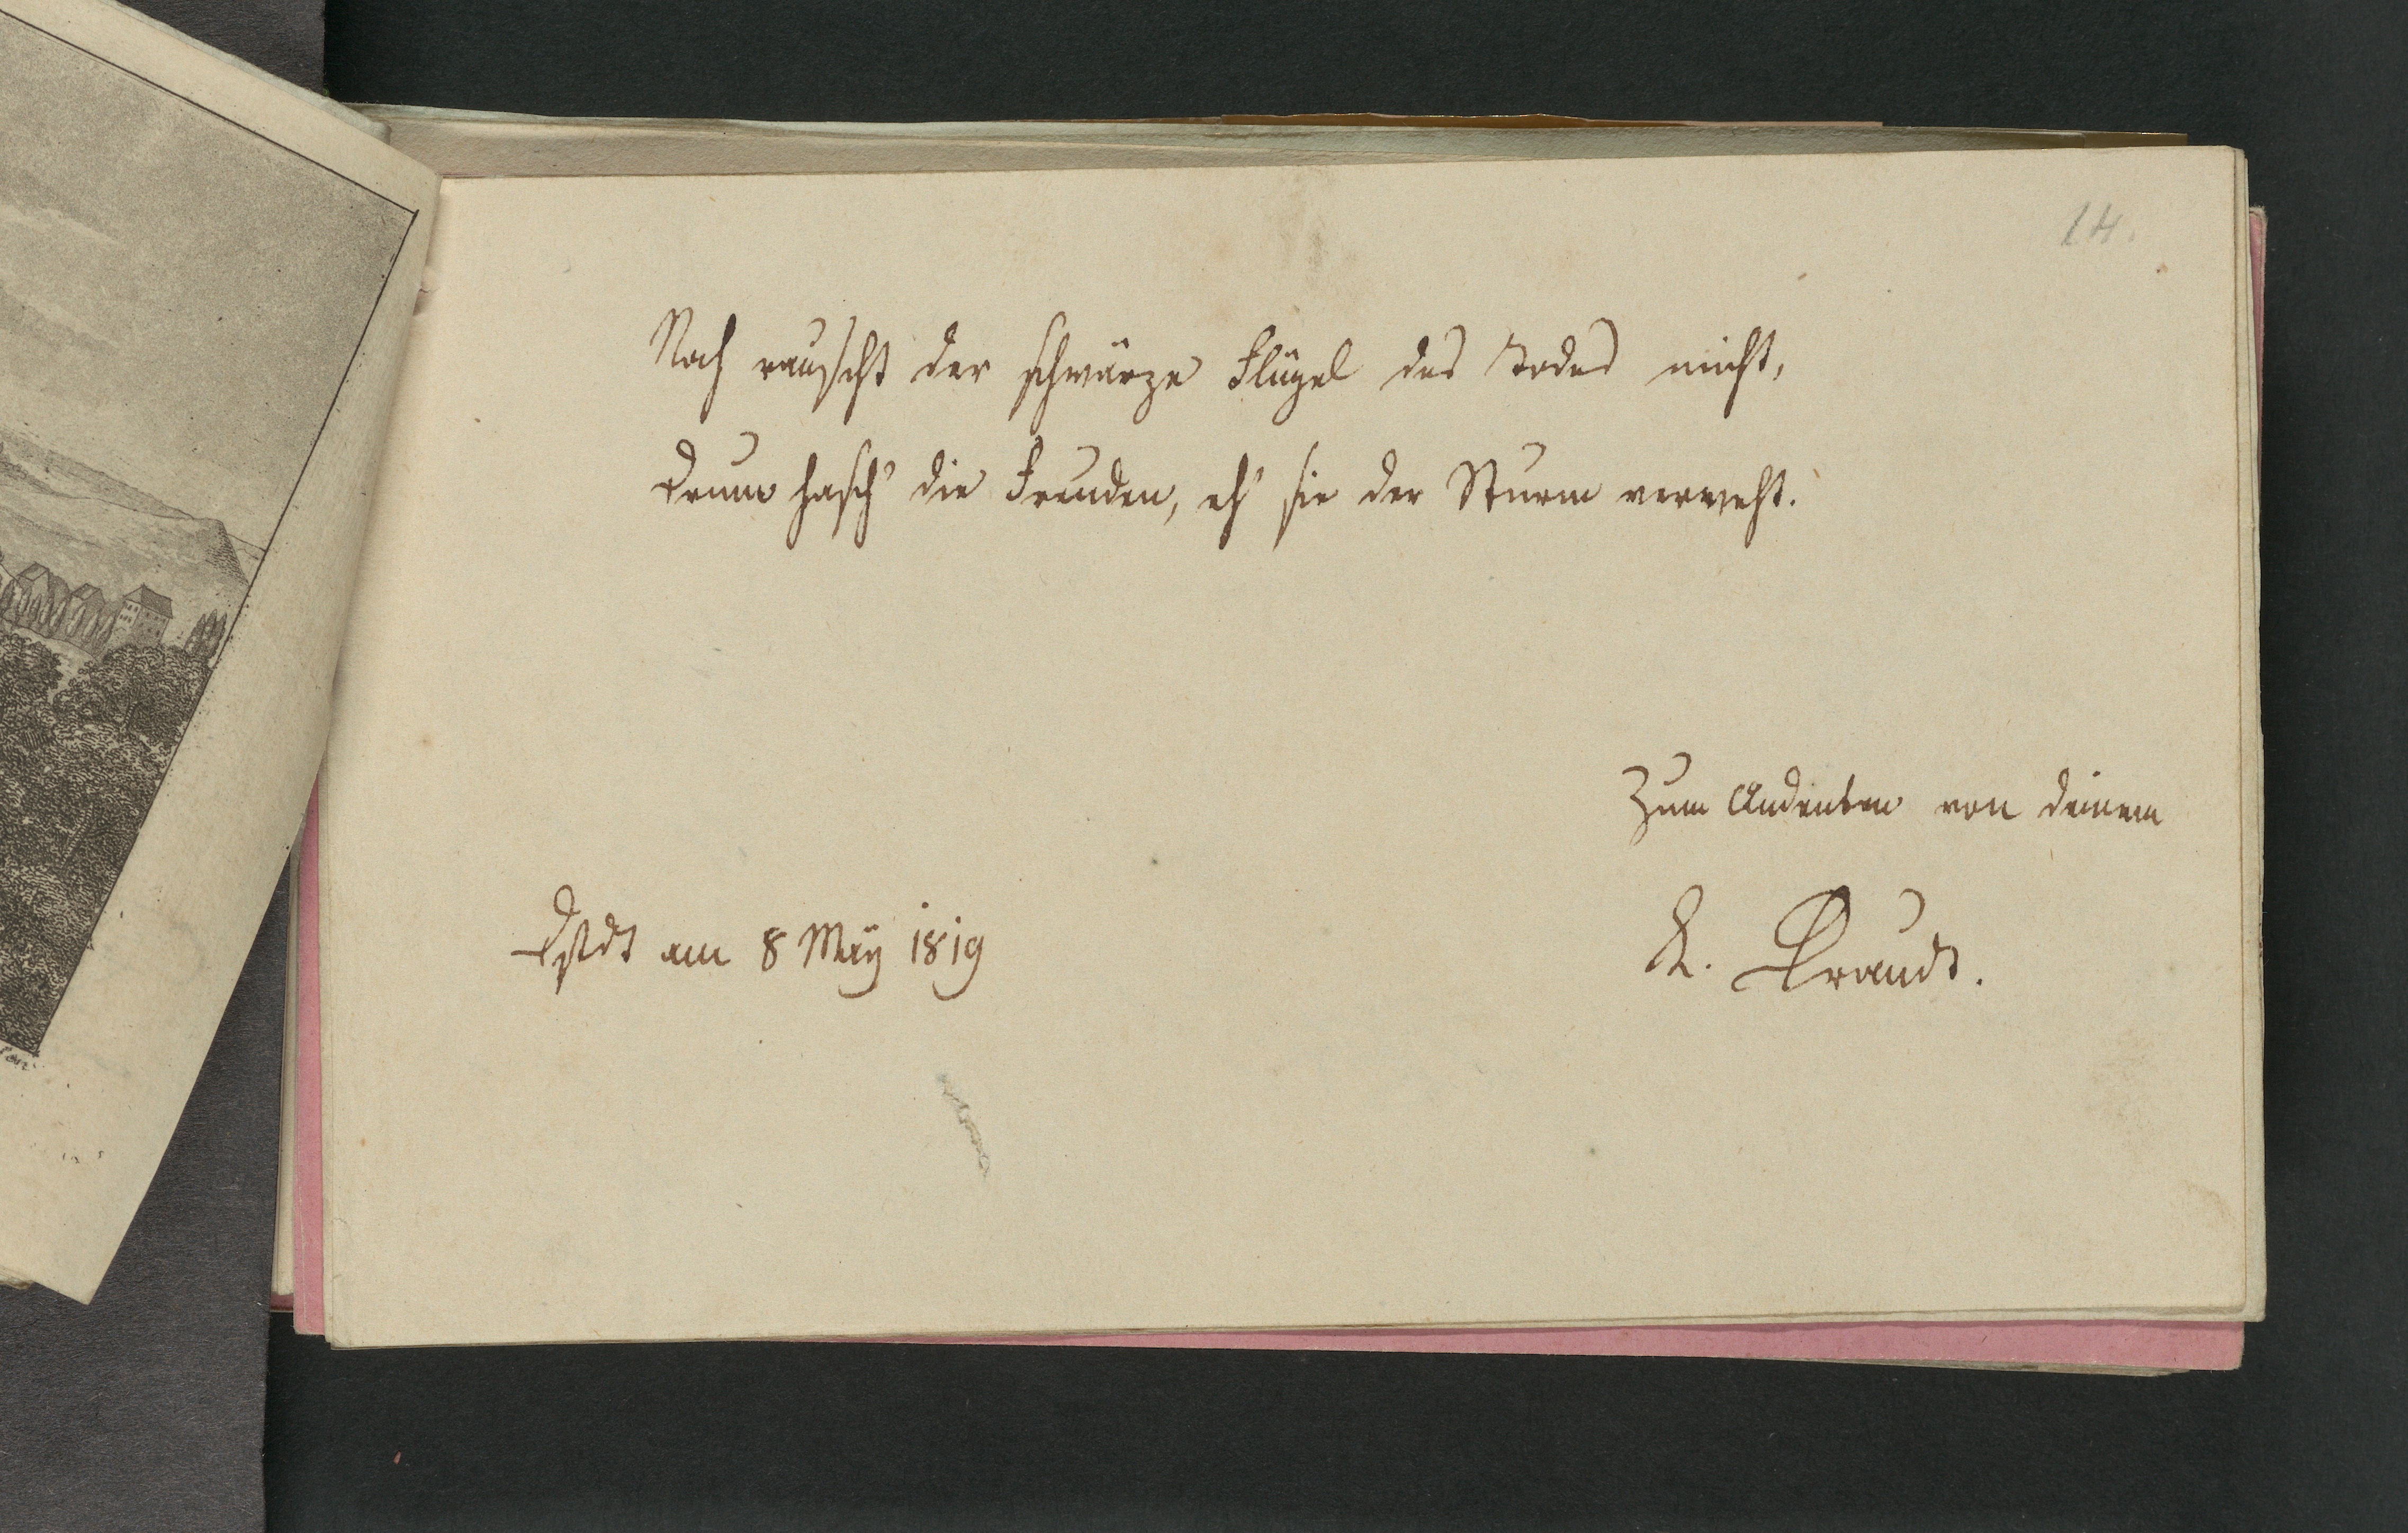 14.
Noch rauscht der schwarze Flügel des Todes nicht,
Drum hasch' die Freuden, eh' sie der Sturm verweht.
Zum Andenken von deinem
am 8 May 1819